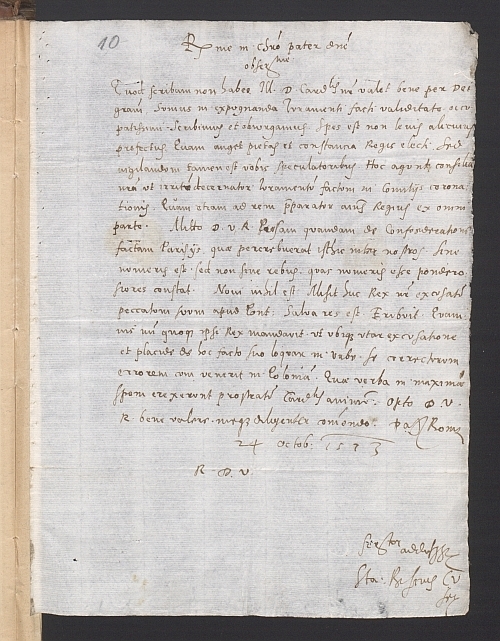 10
R me in Chro pater dne
obser me
Quod scribam non habeo Ill. D. Cardlis nr valet bene per Dei
gram. Sumus in expugnanda Iuramenti facti validitate occu
patissimi. Scribimus et obiurgamus. Spes est non levis alicuius
profectus. Quam auget pietas et constancia Regis electi. Sed
vigilandum tamen est vobis speculatoribus. Hoc agunt
ut irritum decernatur Iuramentum factum in Comitijs corona
tionis. Quam etiam ad rem paratior animus Regius ex omni
parte. Mitto D. V. R. Prosam quandam de Confoederatione
factam Parisijs, quae percrebuerat isthic inter nostros. Sine
numeris est sed non sine rebus, quas numeris esse pondero
siores constat. Novi nihil est. Misit huc Rex nr excusatum
peccatum suum apud Pont. Salva res est. Erubuit.
mihi quoque ipse Rex mandavit ut ubique utar excusatione
et placide de hoc facto suo loquar in Urbe. Se correcturum
errorem cum venerit in Poloniam. Quae verba in maximam
spem erexerunt prostratum Cardlis animum. Opto D. V.
R. bene valere meque diligenter comendo. Romae
24 Octob: 1573
R. D. V.
Sta: Rescius